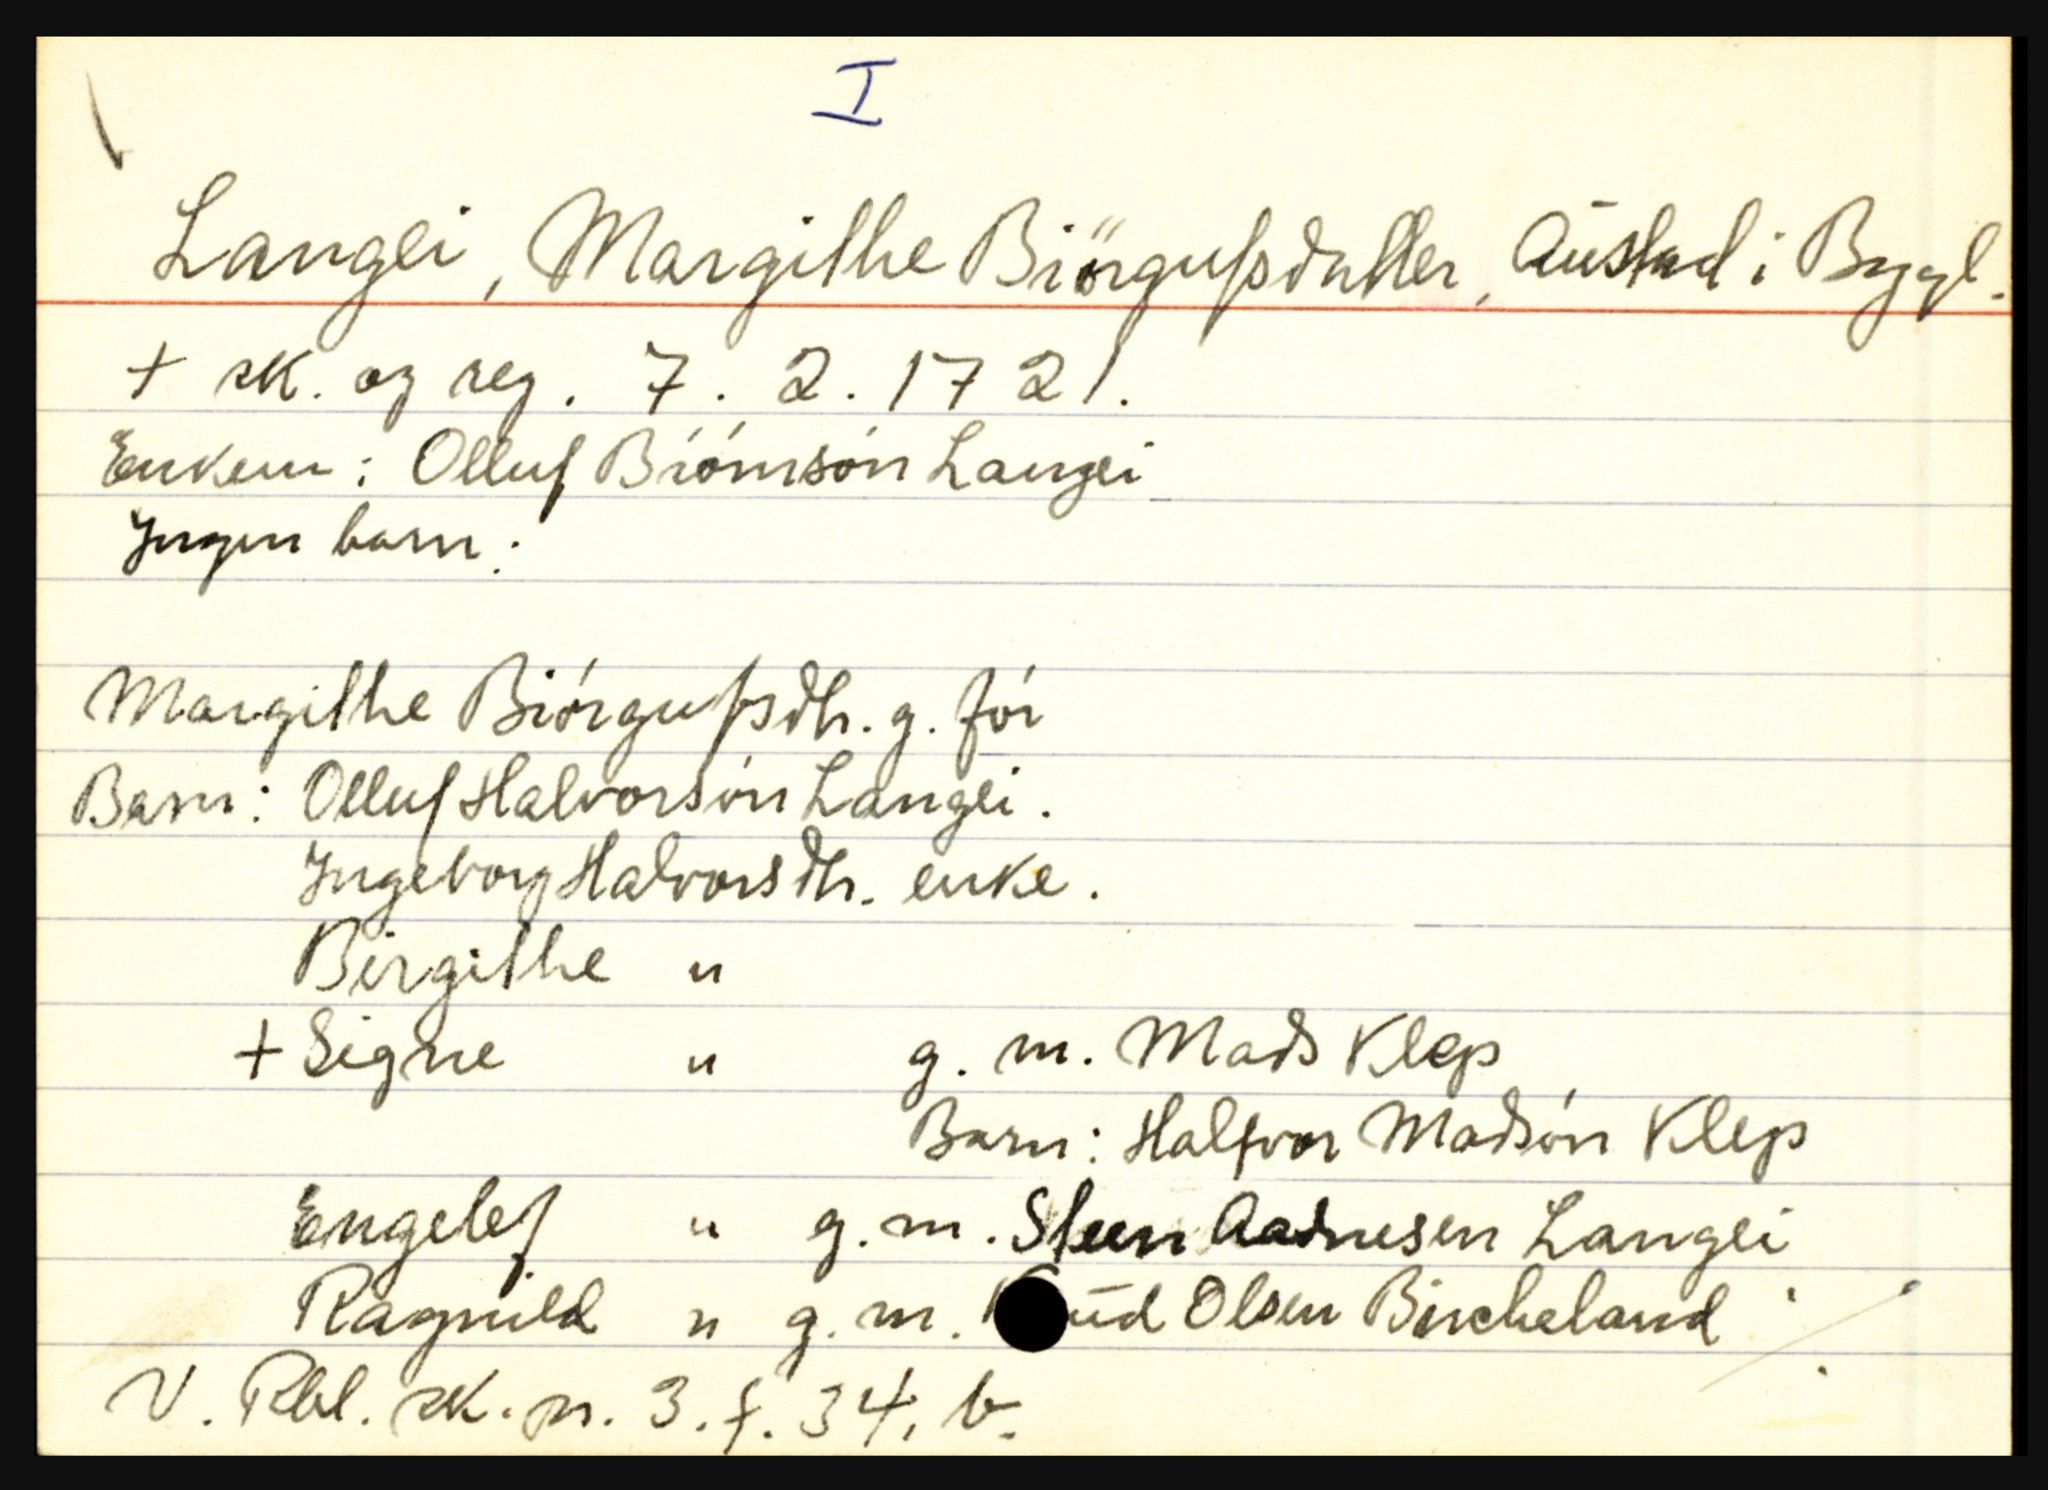 I
Langei, Margithe Biörgufsdatter, Austad i Bygl.
+ sk. og reg. 7. 2. 1721.
Enkem: Olluf Biórnsón Langei
Ingen barn:
Margithe Biórgufsdtr. g. fór
Barn: Olluf Halvorsón Langei.
Ingeborg Halvorsdtr. enke.
Birgithe "
+ Signe " g. m. Mads Klep
Barn: Halfvor Madsón Klep
Engelef " g. m. Steen Aadnesen Langei
Ragnild " g. m. Olsen Bircheland
V. Rbl. sk. pr. 3. f. 34. b.